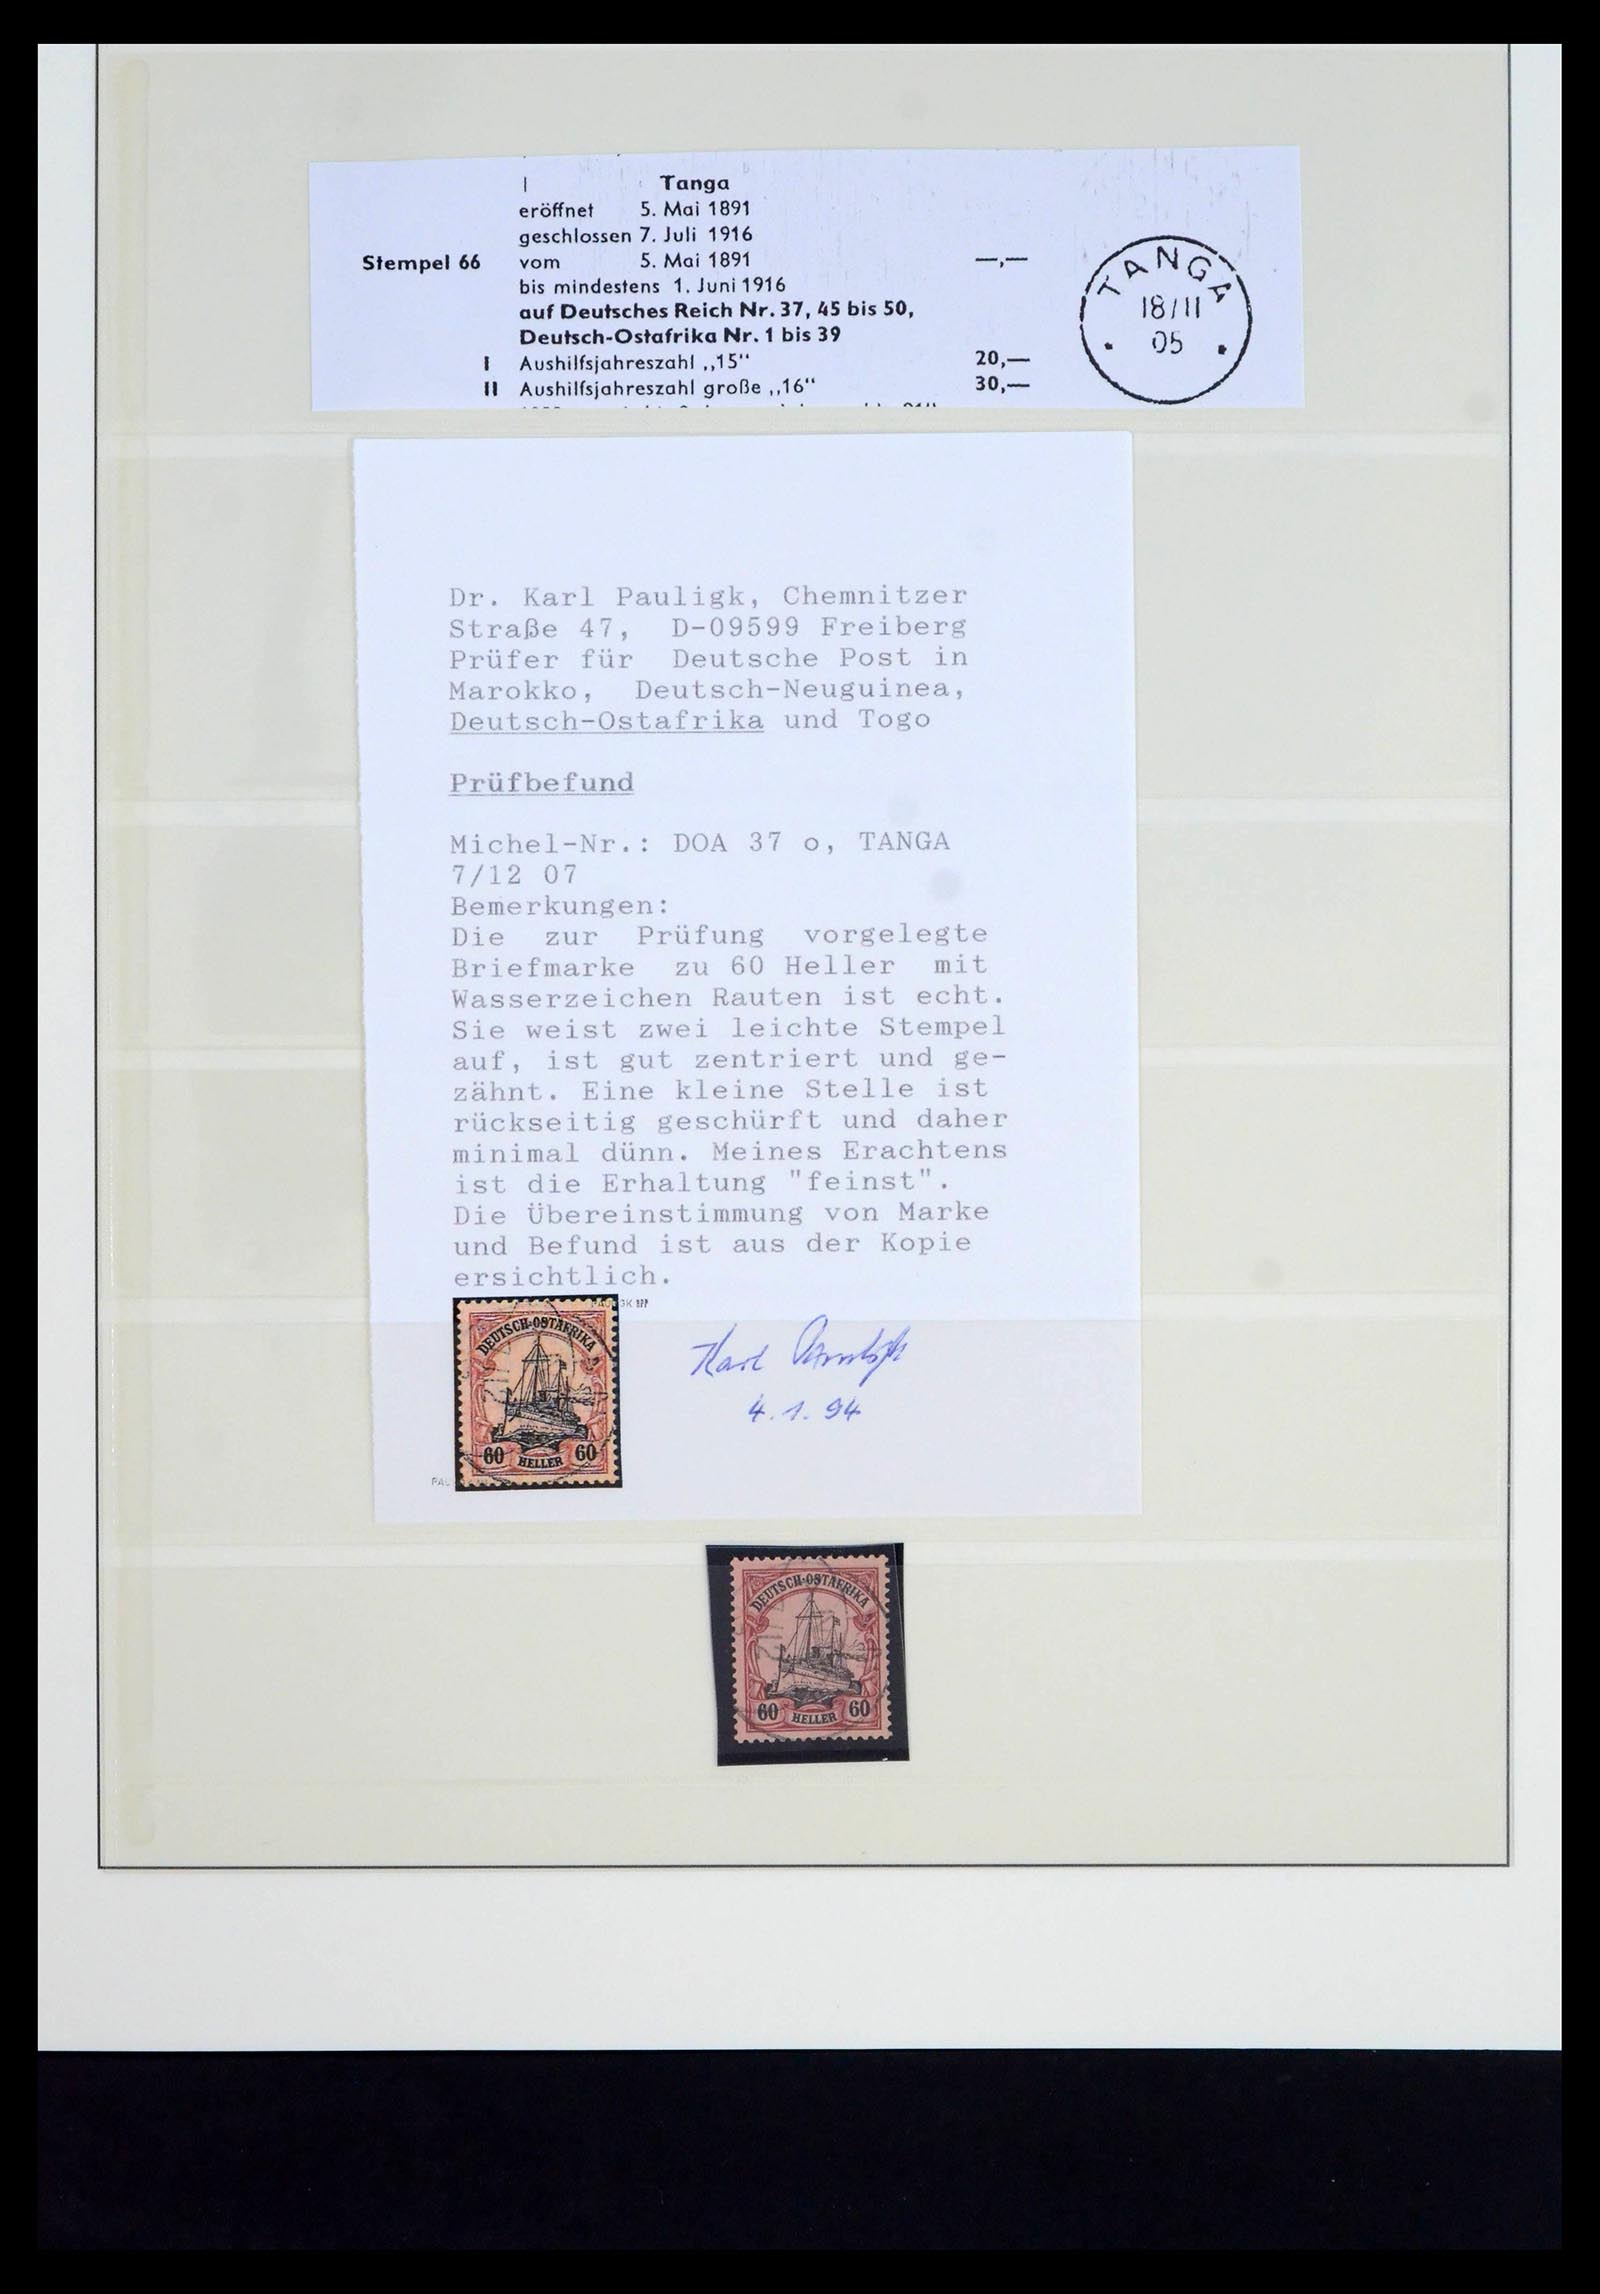 Tanga
eröffnet 5. Mai 1891
geschlossen 7. Juli 1916
Stempel 66 vom 5. Mai 1891 —,—
bis mindestens 1. Juni 1916
auf Deutsches Reich Nr. 37, 45 bis 50,
Deutsch-Ostafrika Nr. 1 bis 39
I Aushilfsjahreszahl „15“ 20,—
II Aushilfsjahreszahl große „16“ 30,—
TANGA
18/11
05
Dr. Karl Pauligk, Chemnitzer
Straße 47, D-09599 Freiberg
Prüfer für Deutsche Post in
Marokko, Deutsch-Neuguinea,
Deutsch-Ostafrika und Togo
Prüfbefund
Michel-Nr.: DOA 37 o, TANGA
7/12 07
Bemerkungen:
Die zur Prüfung vorgelegte
Briefmarke zu 60 Heller mit
Wasserzeichen Rauten ist echt.
Sie weist zwei leichte Stempel
auf, ist gut zentriert und ge-
zähnt. Eine kleine Stelle ist
rückseitig geschürft und daher
minimal dünn. Meines Erachtens
ist die Erhaltung "feinst".
Die Übereinstimmung von Marke
und Befund ist aus der Kopie
ersichtlich.
DEUTSCH-OSTAFRIKA
60 HELLER 60
Karl Pauligk
4. 1. 94
DEUTSCH-OSTAFRIKA
60 HELLER 60